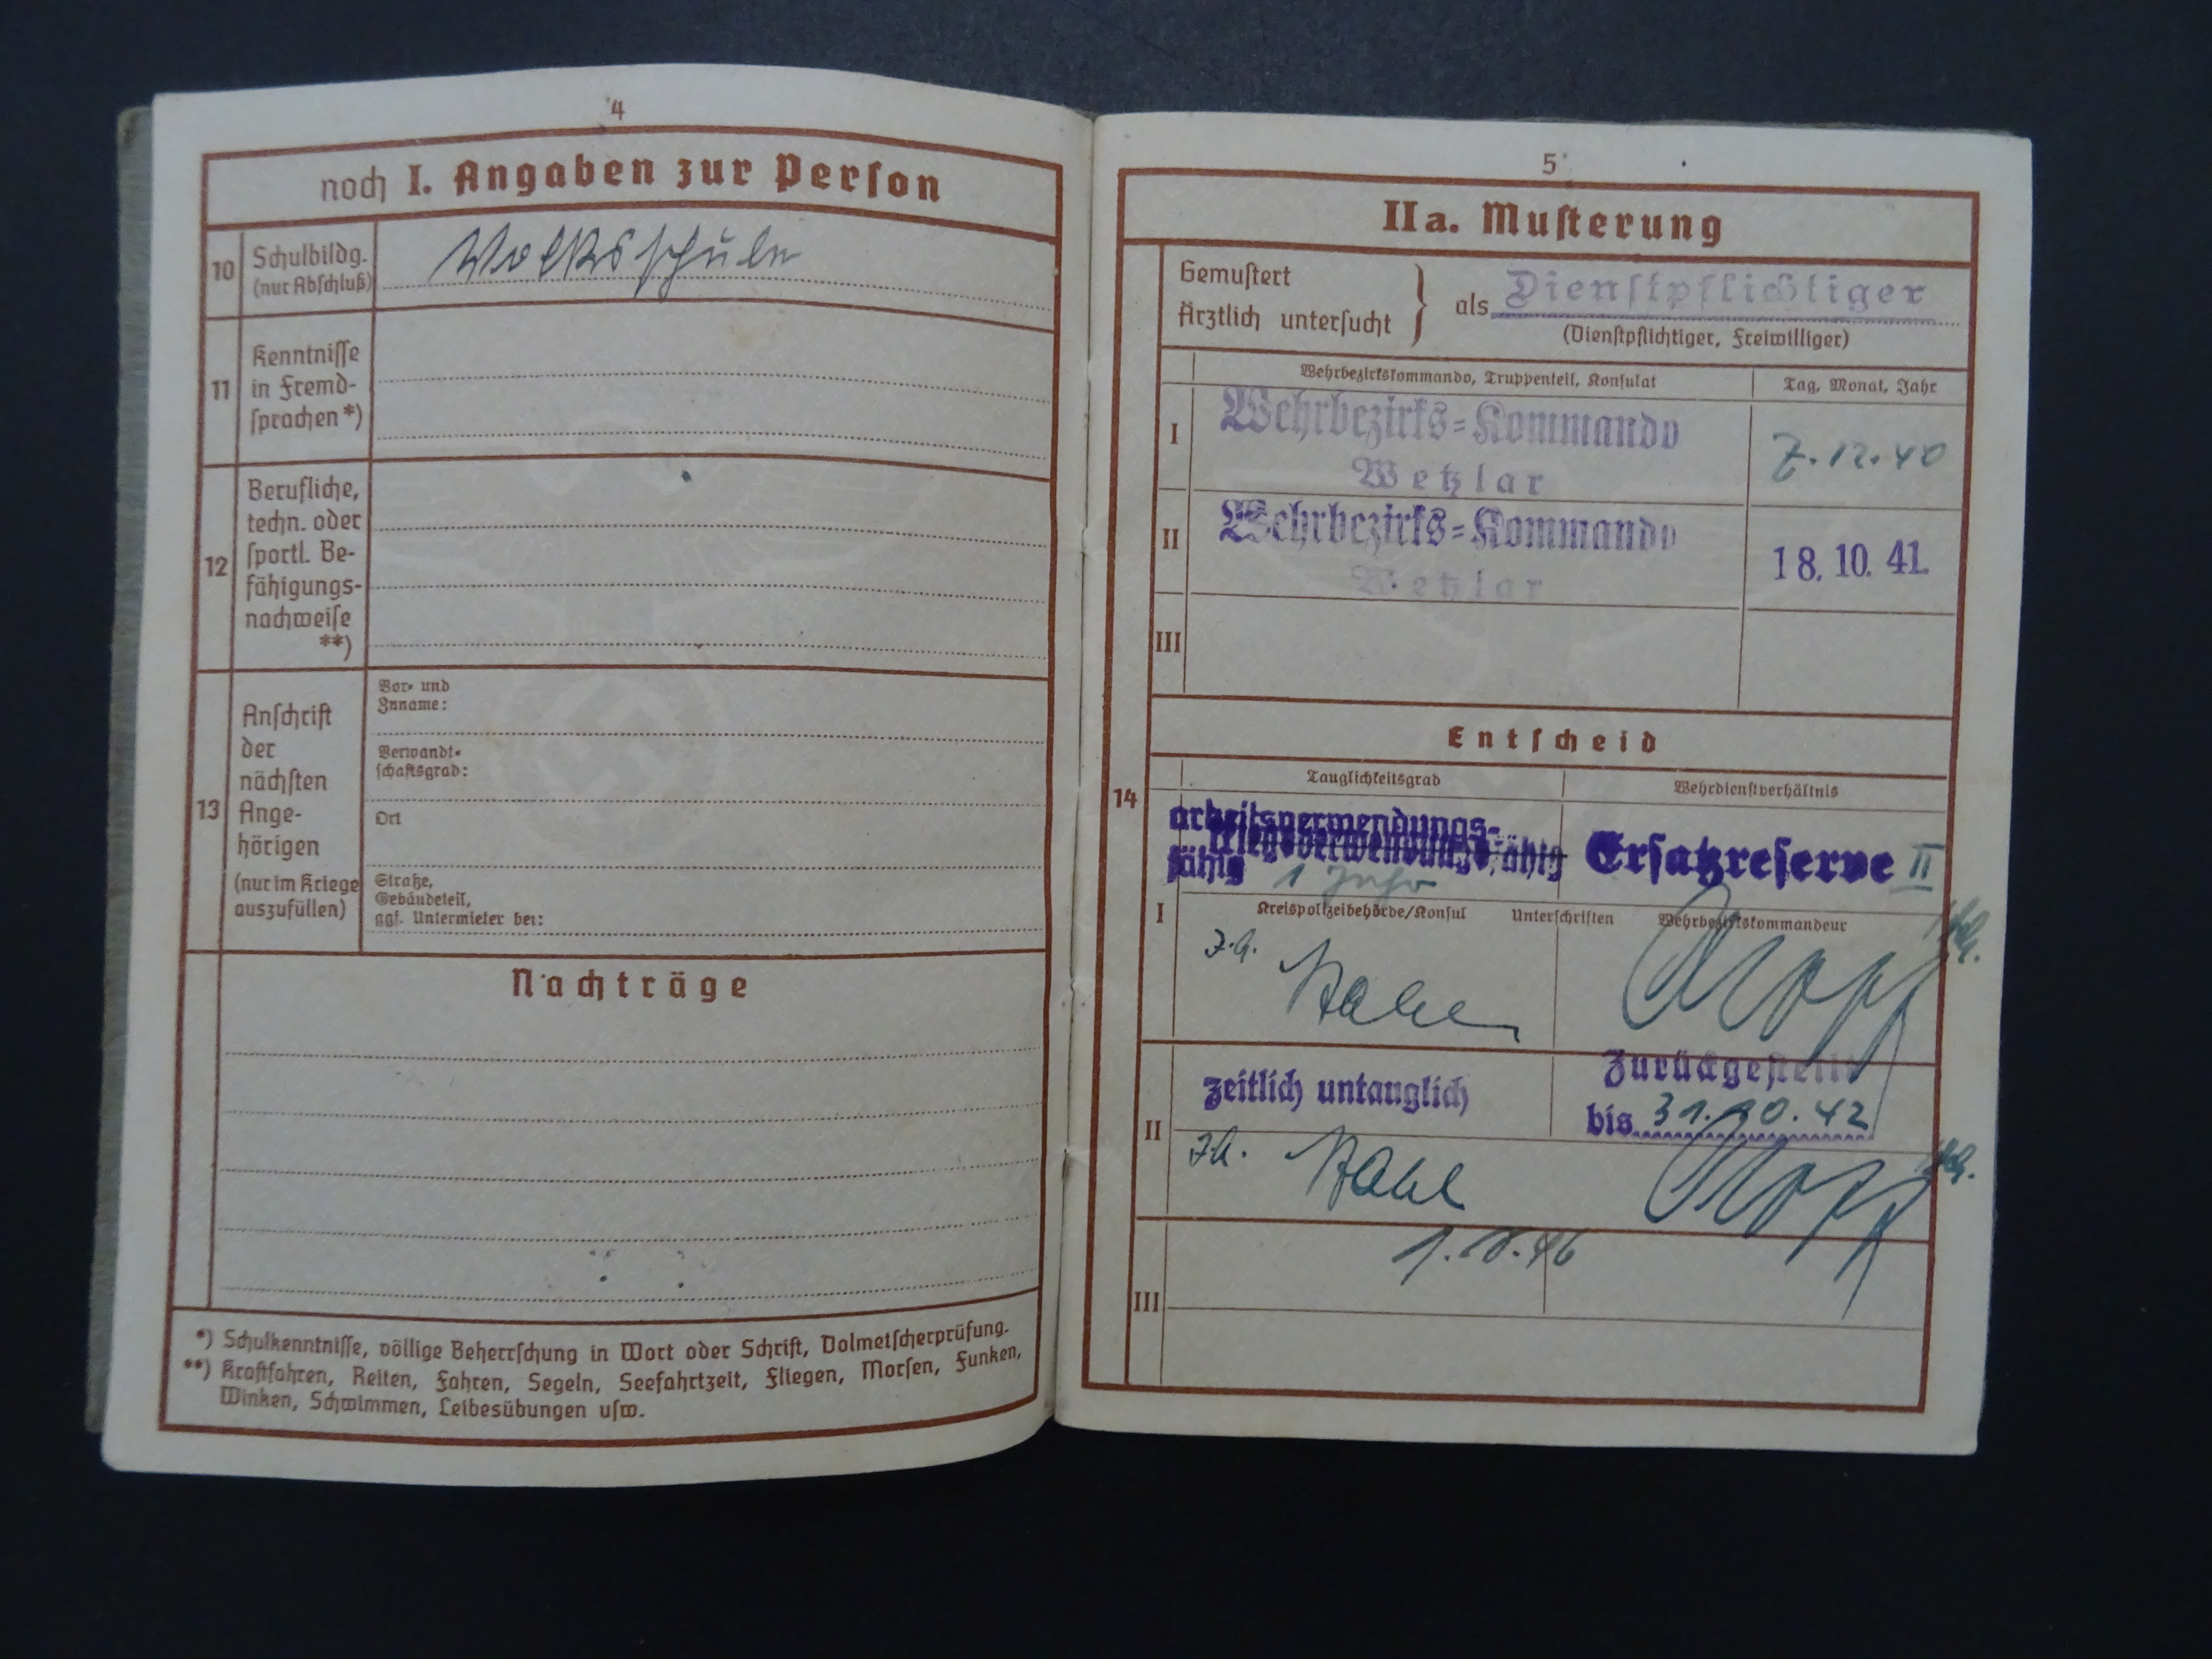 4
noch I. Angaben zur Person
10 Schulbildg. (nur Abschluß)
Volksschule
11 Kenntnisse in Fremdsprachen *)
12 Berufliche,
techn. oder
sportl. Be-
fähigungs-
nachweise
**)
13 Anschrift
der
nächsten
Ange-
hörigen
(nur im Kriege
auszufüllen)
Vor- und
Zuname:
Verwandt-
schaftsgrad:
Ort
Straße,
Gebäudeteil,
ggf. Untermieter bei:
Nachträge
*) Schulkenntnisse, völlige Beherrschung in Wort oder Schrift, Dolmetscherprüfung.
**) Kraftfahren, Reiten, Fahren, Segeln, Seefahrtzeit, Fliegen, Morsen, Funken,
Winken, Schwimmen, Leibesübungen usw.
5
IIa. Musterung
Gemustert
Ärztlich untersucht
als Dienstpflichtiger
(Dienstpflichtiger, Freiwilliger)
Wehrbezirkskommando, Truppenteil, Konsulat
Tag, Monat, Jahr
I
Wehrbezirks-Kommando
Wetzlar
7.12.40
II
Wehrbezirks-Kommando
Wetzlar
18. 10. 41.
III
Entscheid
14
Tauglichkeitsgrad
Wehrdienstverhältnis
arbeitsverwendungs-
fähig
kriegsverwendungsfähig
1 Jahr
Ersatzreserve II
I
Kreispolizeibehörde/Konsul Unterschriften Wehrbezirkskommandeur
I.A.
II
zeitlich untauglich
Zurückgestellt
bis 31.10.42
I.A.
III